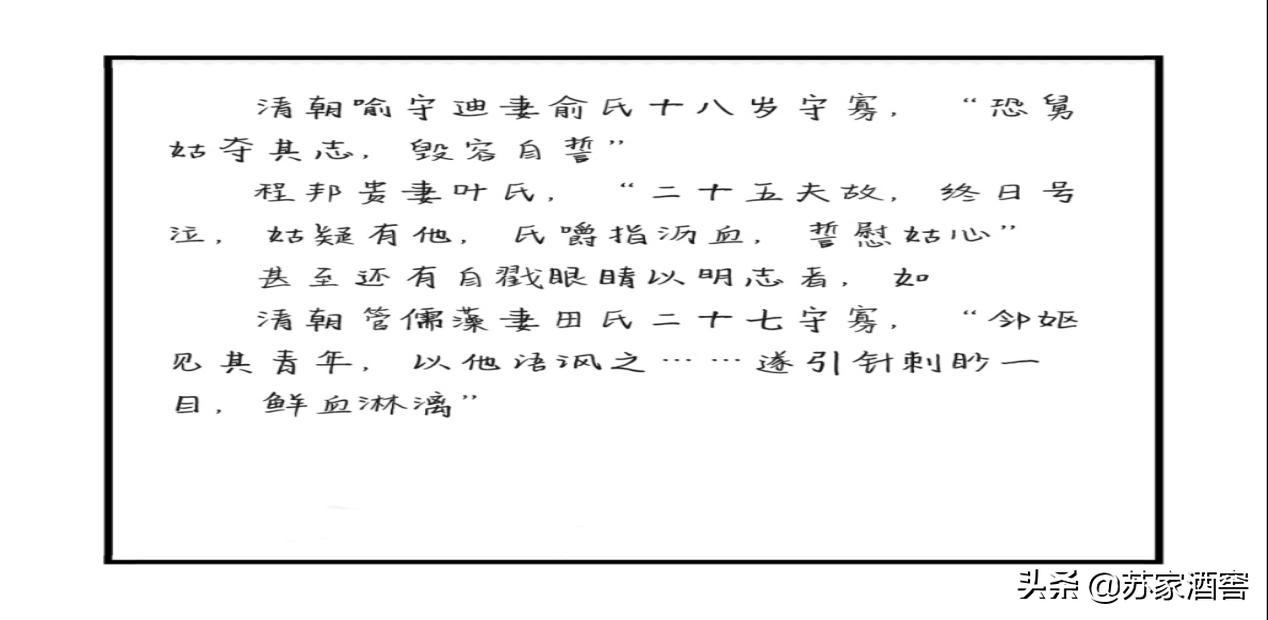 清朝喻守迪妻俞氏十八岁守寡，“恐舅
姑夺其志，毁容自誓”
程邦贵妻叶氏，“二十五夫故，终日号
泣，姑疑有他，氏嚼指沥血，誓慰姑心”
甚至还有自戳眼睛以明志者，如
清朝管儒藻妻田氏二十七守寡，“邻妪
见其青年，以他语讽之……遂引针刺眇一
目，鲜血淋漓”
头条 @苏家酒窖